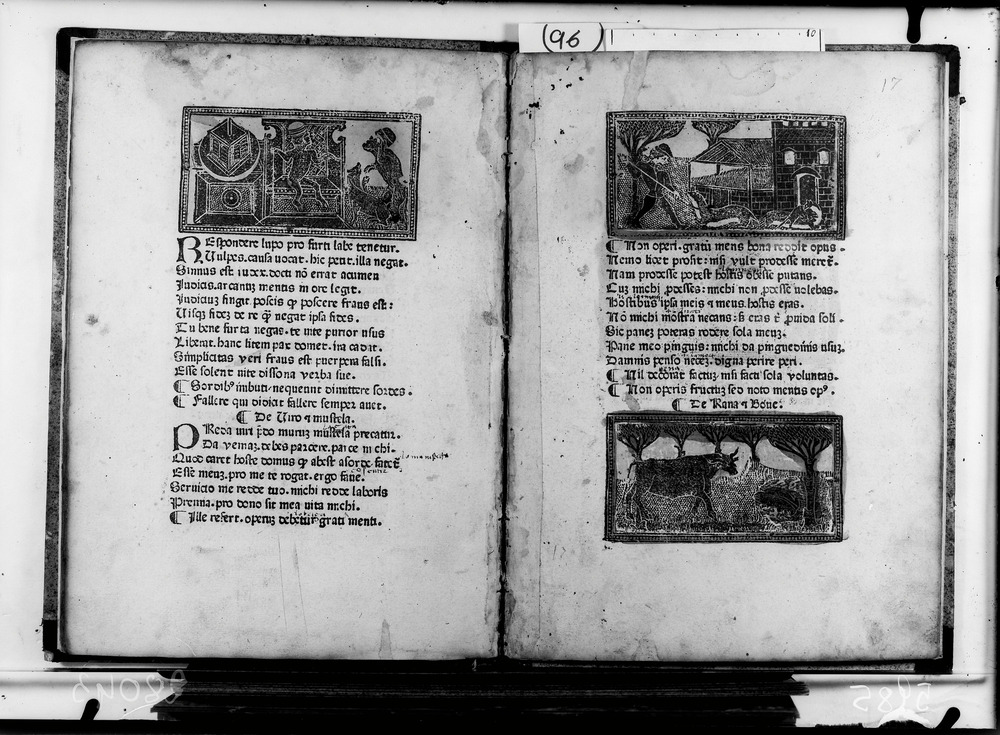 (96)
10
17
REspondere lupo pro furti labe tenetur.
Uulpes. causa uocat. hic petit. illa negat.
Simius est iudex. docti nō errat acumen
Iudicis. arcanuz mentis in ore legit.
Iudiciuz fingit. poscis q poscere fraus est:
Uisqz fidez de re q̄ negat ipsa fides.
Tu bene furta negas. te uite purior usus
Liberat. hanc litem pax domet. ira cadat.
Simplicitas veri fraus est puerpera falsi.
Esse solent uite dissona verba sue.
¶ Sordibꝰ imbuti nequeunt dimittere sordes.
¶ Fallere qui didicit fallere semper auet.
¶ De Uiro ⁊ mustela.
PReda uiri p̄do muruz mustela precatur.
Da veniaz. debes parcere. parce michi.
Quod caret hoste domus q abest a sorde
Esse meuz. pro me te rogat. ergo faue.
Seruicio me redde tuo. michi redde laboris
Premia. pro dono sit mea uita michi.
¶ Ille refert. operuz debetur grati menti.
¶ Non operi. gratū mens bona reddit opus.
Nemo licet prosit: nisi vult prodesse meret̄.
Nam prodesse potest hostis obesse putans.
Cuz michi ꝓdesses: michi non ꝓdesse uolebas.
Hostibus ipsa meis ⁊ meus hostis eras.
Nō michi mostra necans: s̄ eras t̄ ꝓuida soli.
Sic panez poteras rodere sola meuz.
Pane meo pinguis: michi da pinguedinis usuz.
Damnis penso necez. digna perire peri.
¶ Nil decorat factuz nisi facti sola voluntas.
¶ Non operis fructuz sed noto mentis opꝰ.
¶ De Rana ⁊ Boue:
22043
5285